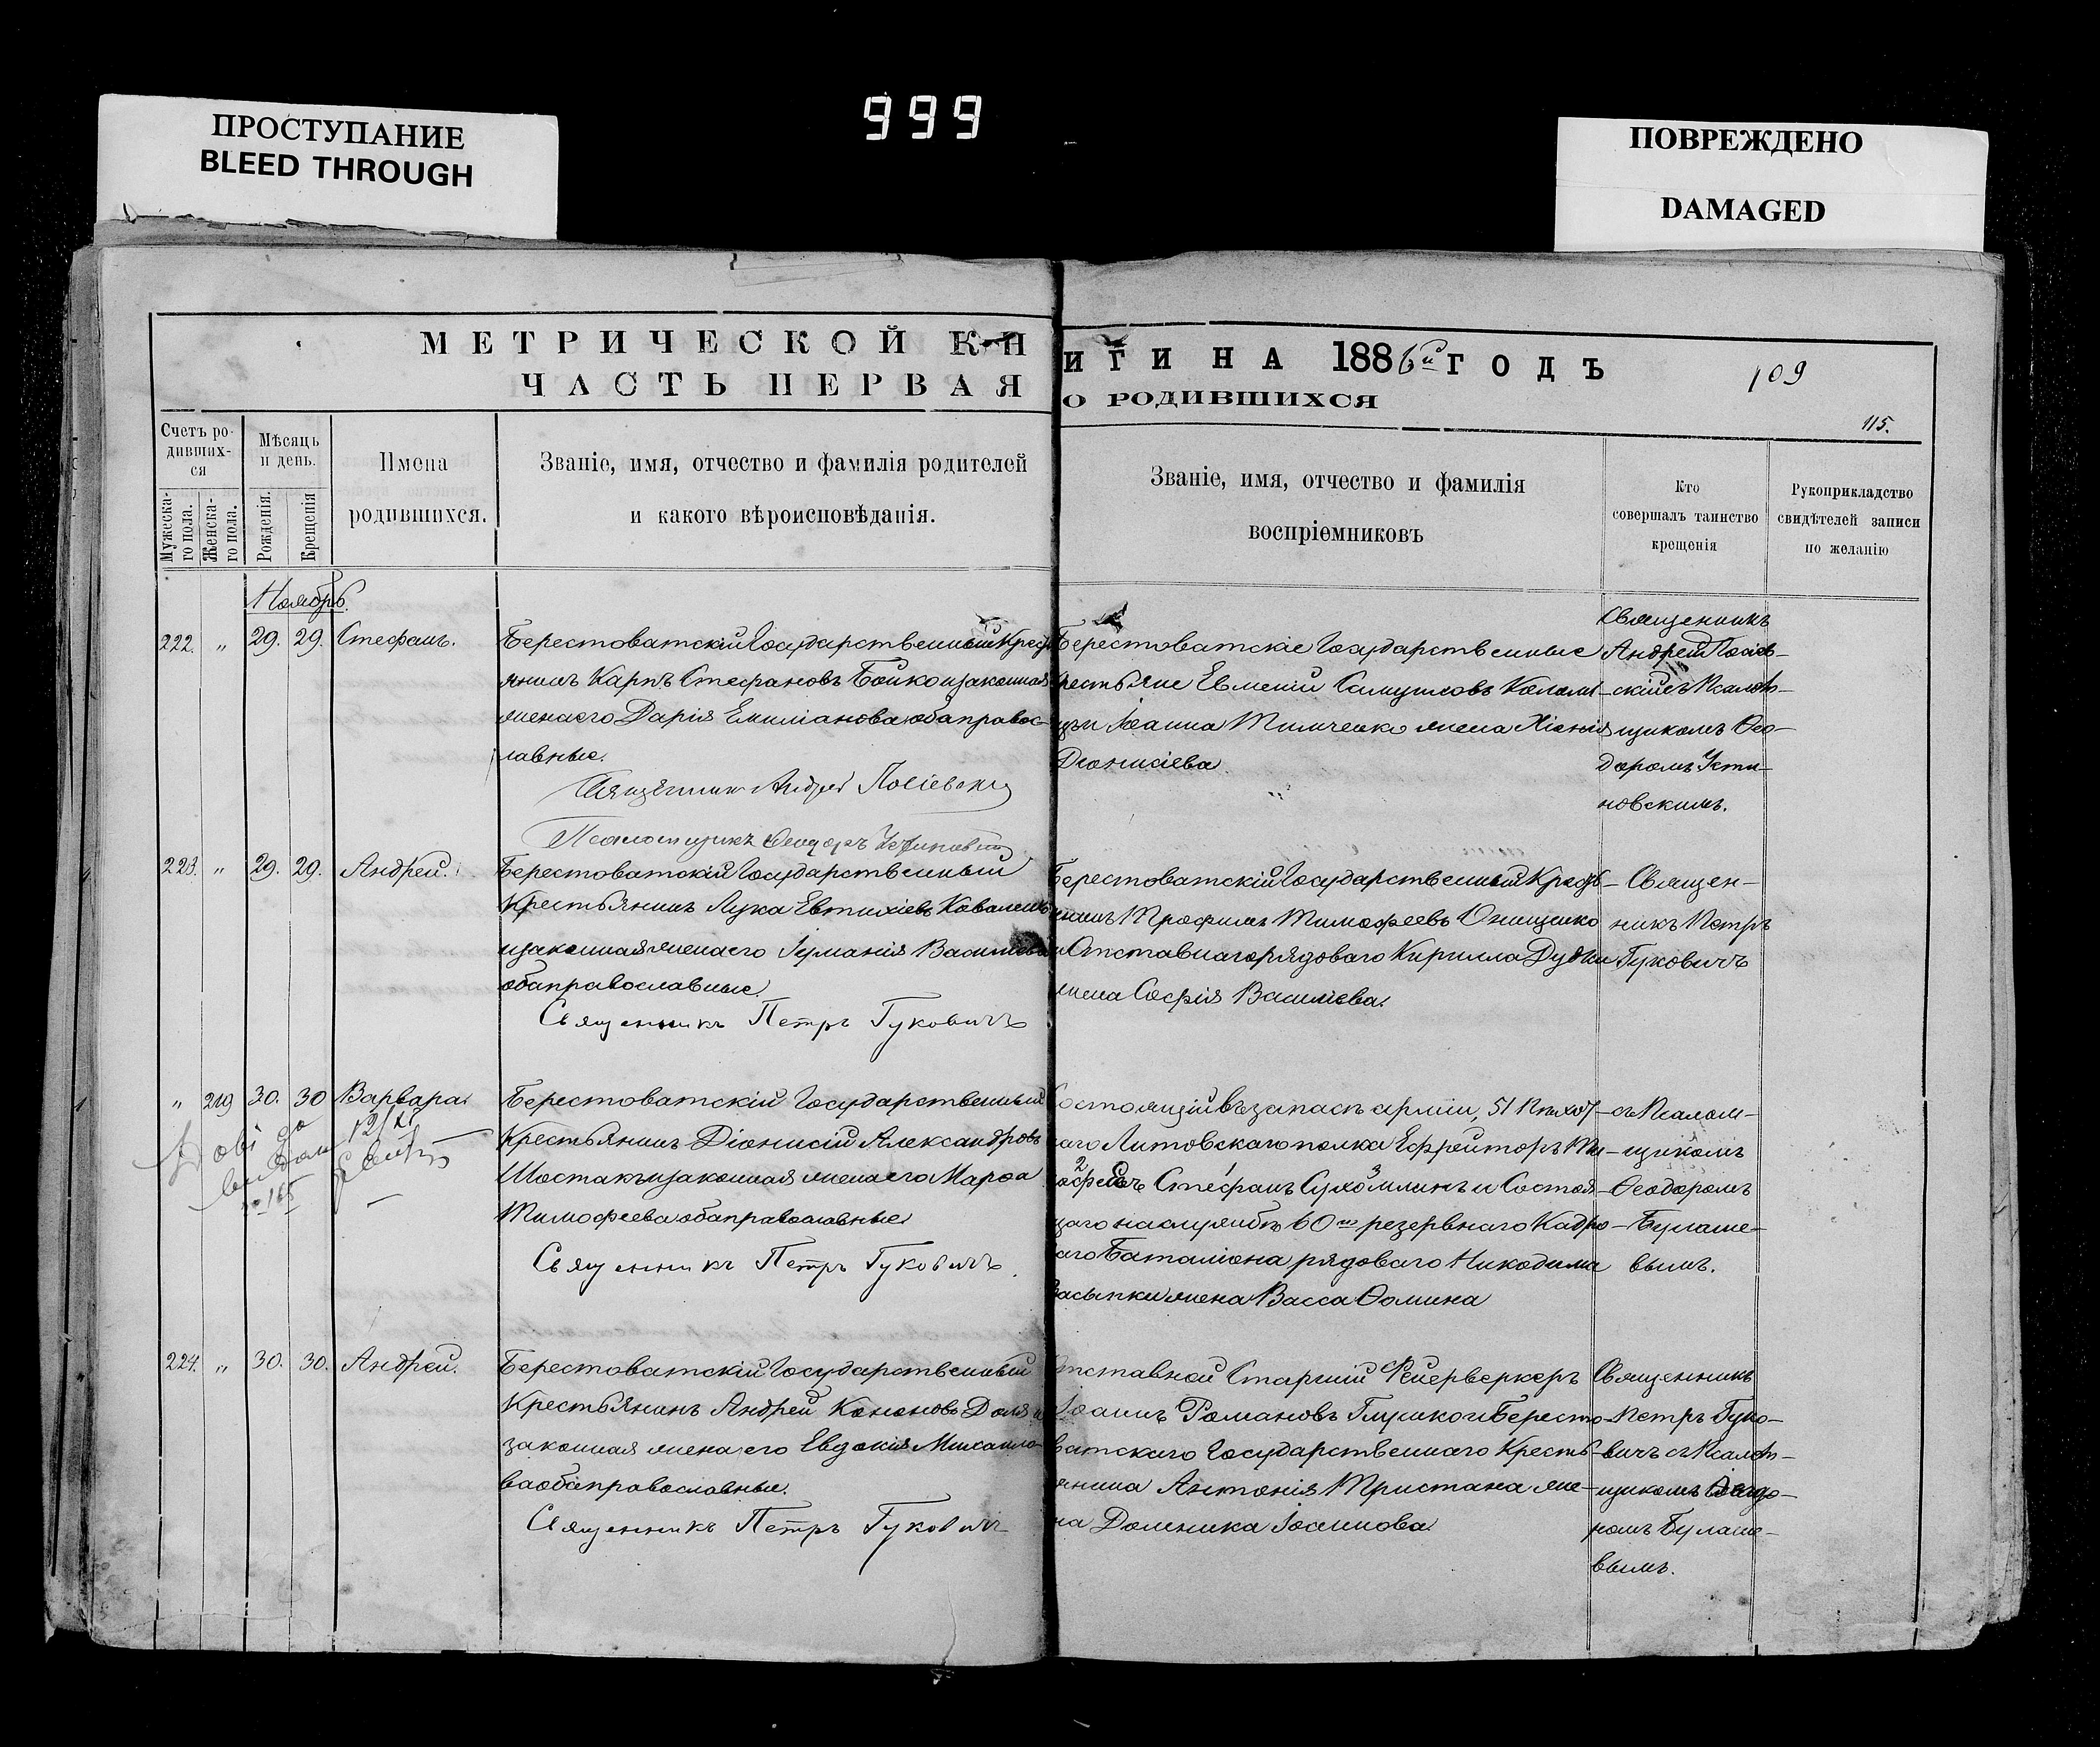 ПРОСТУПАНИЕ
BLEED THROUGH
999
ПОВРЕЖДЕНО
DAMAGED
МЕТРИЧЕСКОЙ КН
ЧАСТЬ ПЕРВАЯ
ИГИ НА 1886й ГОДЪ
О РОДИВШИХСЯ
109
115.
Счетъ ро-
дивших-
ся
Мужеска-
го пола.
Женска-
го пола.
Мѣсяцъ
и день.
Рожденія.
Крещенія
Имена
родившихся.
Званіе, имя, отчество и фамилія родителей
и какого вѣроисповѣданія.
Званіе, имя, отчество и фамилія
воспріемниковъ
Кто
совершалъ таинство
крещенія
Рукоприкладство
свидѣтелей записи
по желанію
Ноябрь.
222. " 29. 29. Стефанъ.
Берестоватскій Государственный Крестъ
янинъ Карпъ Стефановъ Бойко и законная
жена его Дарія Емиліанова оба правос-
лавные.
Священник Андрей Посіевскій
Псаломщикъ Феодоръ Устиновскій
Берестоватскіе Государственные
крестьяне Евменій Самуиловъ
и Іоанна Тимченко жена Хіенія
Діонисіева
Священникъ
Андрей Посіев-
скій съ Псалом-
щикомъ Ѳео-
доромъ Усти-
новскимъ.
223. " 29. 29. Андрей.
Берестоватскій Государственный
Крестьянинъ Лука Евтихіевъ
и законная жена его Іуліанія Василіева
оба православные.
Священникъ Петръ Гуковичъ
Берестоватскій Государственный Кресть
янинъ Трофимъ Тимофеевъ Онищенко
и Отставнаго рядоваго Кирилла Дудки
жена Софія Василіева.
Священ-
никъ Петръ
Гуковичъ
" 219 30. 30 Варвара.
№ 165
Берестоватскій Государственный
Крестьянинъ Діонисій Александровъ
Шостакъ и законная жена его Марѳа
Тимофеева оба православные
Священникъ Петръ Гуковичъ
Состоящій въ запасѣ арміи, 51 Пѣхот-
наго Литовскаго полка Ефрейторъ Ти-
мофеевъ Стефанъ Сухомлинъ и Состоя-
щаго на службѣ 60го резервнаго Кадро-
ваго Баталіона рядоваго Никодима
Засыпки жена Васса Ѳомина
съ Псалом-
щикомъ
Ѳеодоромъ
Булаше-
вымъ.
224. " 30. 30. Андрей.
Берестоватскій Государственный
Крестьянинъ Андрей Кононовъ Доля и
законная жена его Евдокія Михаило-
ва оба православные.
Священникъ Петръ Гуковичъ
Отставной Старшій Фейерверкеръ
Іоаннъ Романовъ Глушко и Бересто-
ватскаго Государственнаго Кресть-
янина Антонія Тристана же-
на Доменика Іоаннова.
Священникъ
Петръ Гуко-
вичъ съ Псалом-
щикомъ Ѳеодо-
ромъ Булаше-
вымъ.